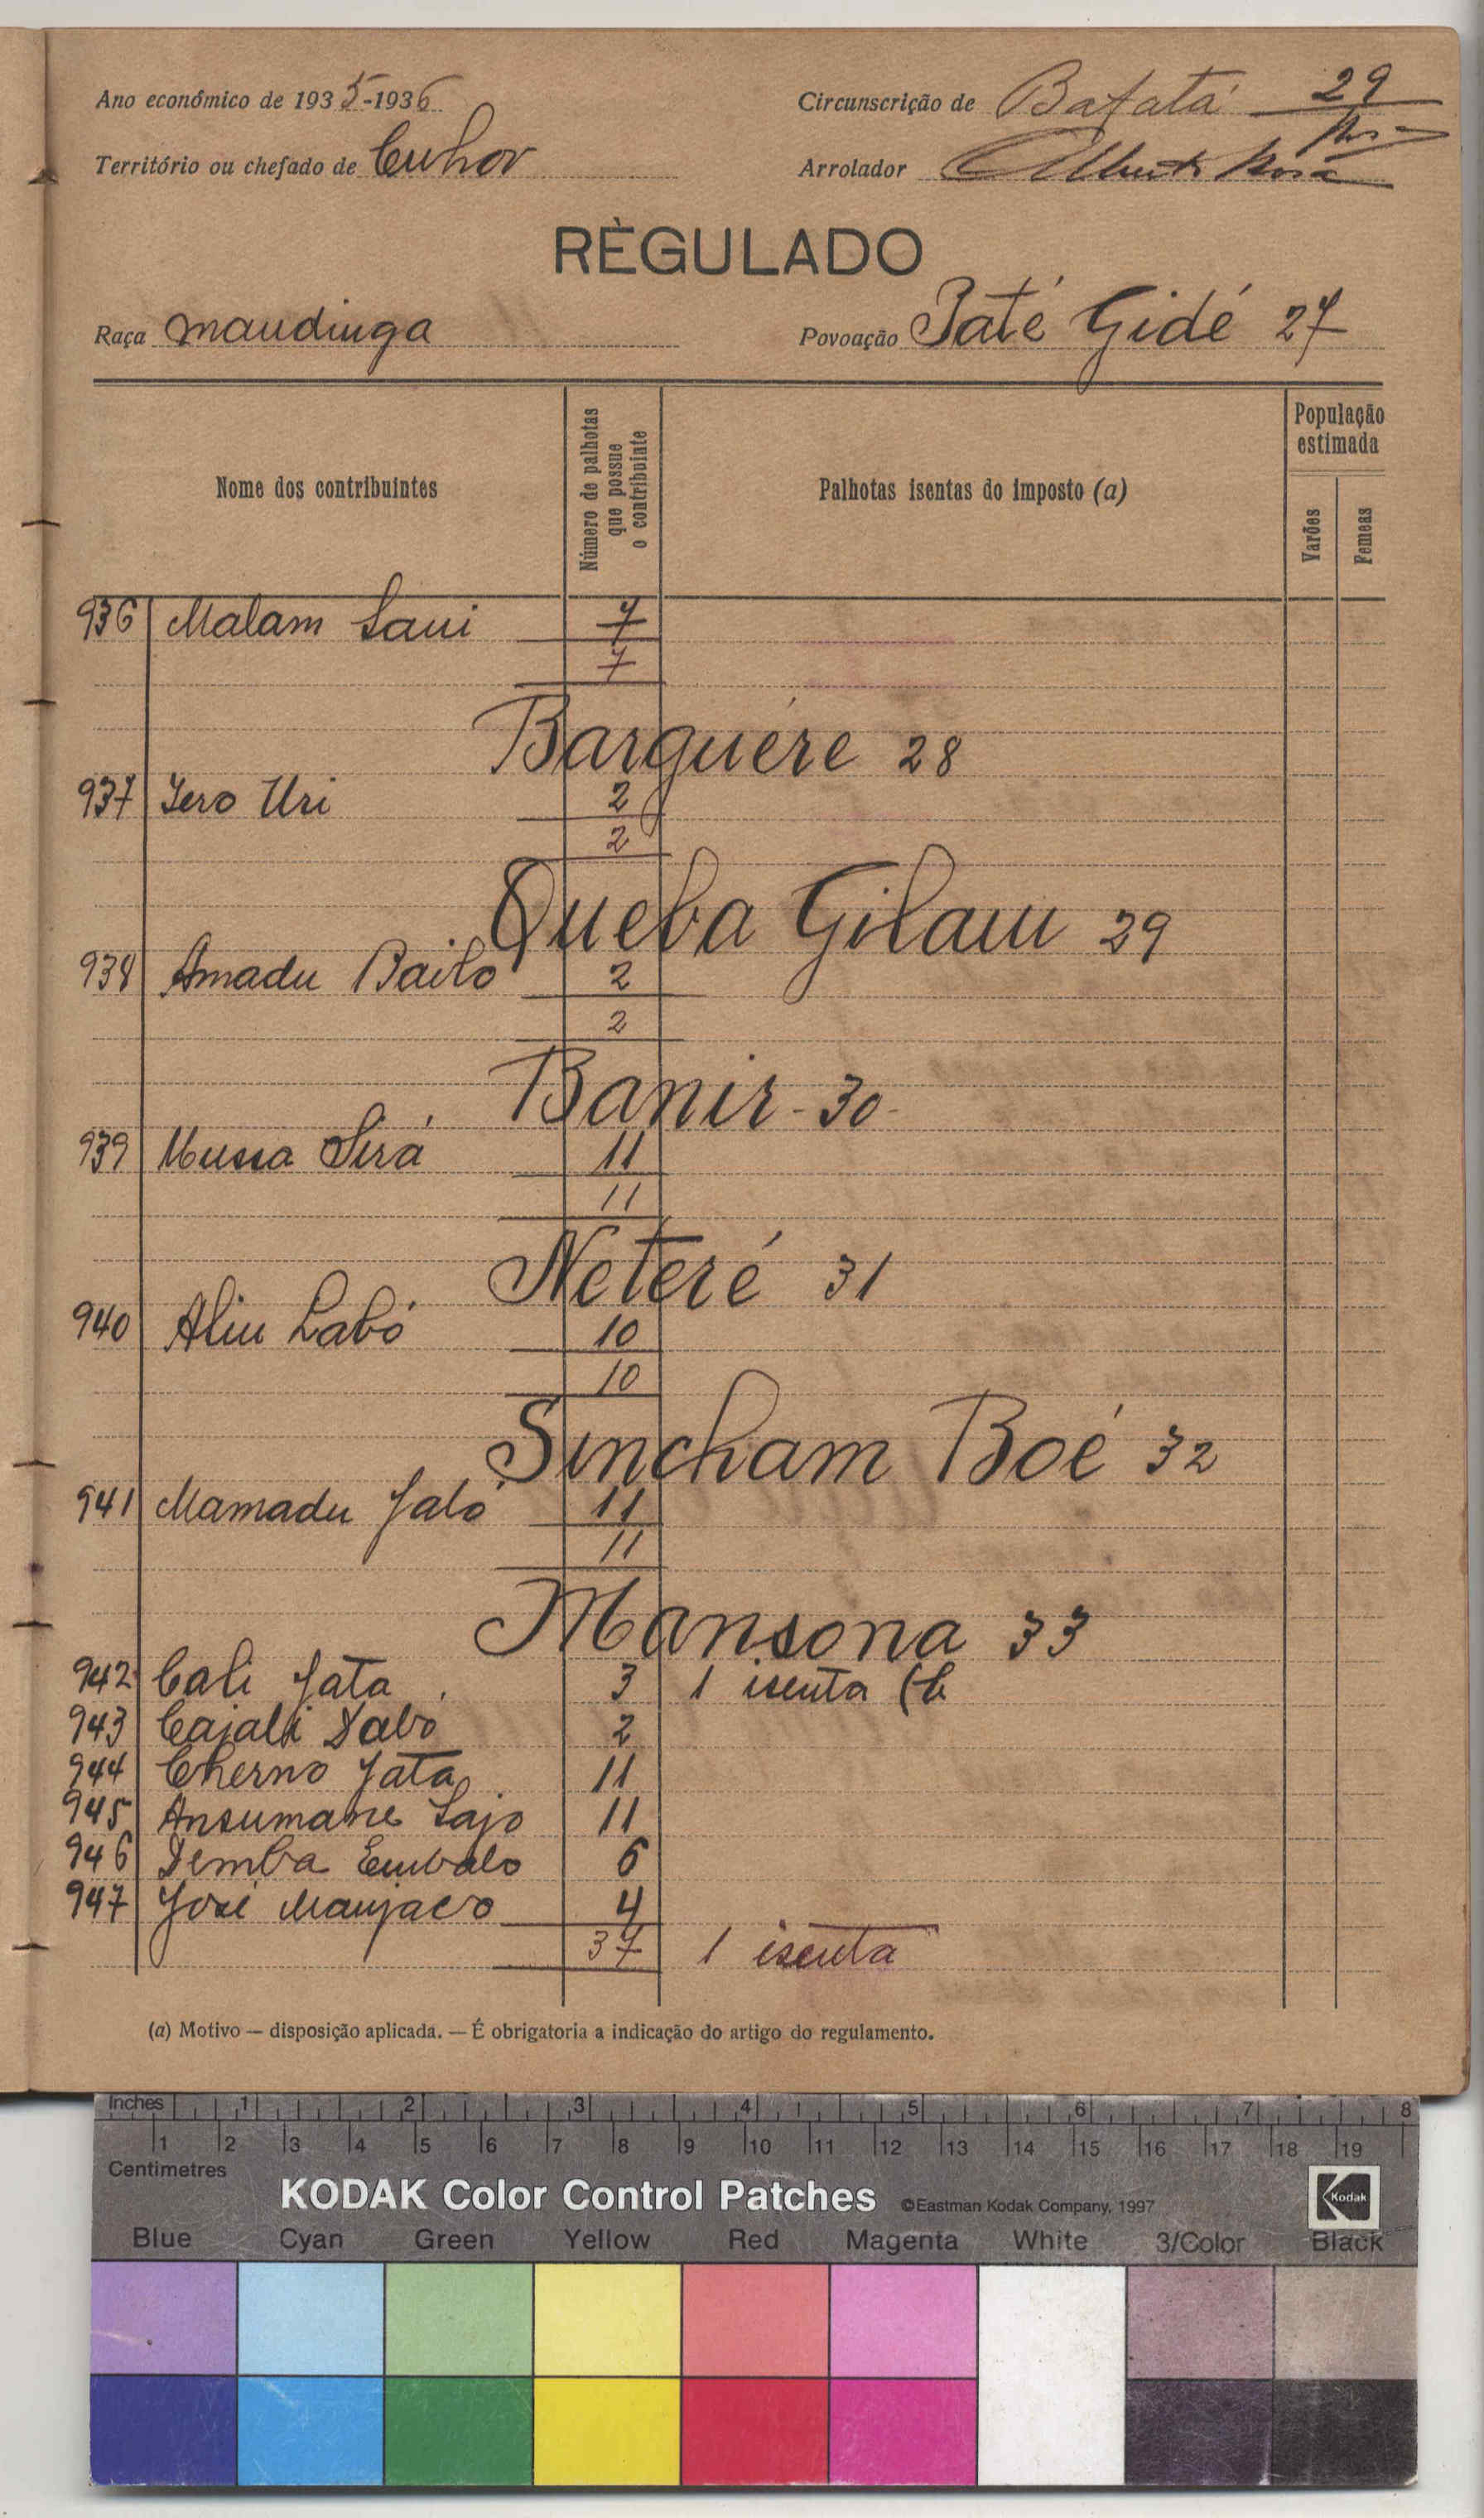 Ano económico de 1935-1936
Circunscrição de Bafatá 29
Território ou chefado de Cuhor
Arrolador Alberto Rosa
RÈGULADO
Raça mandinga
Povoação Paté Gidé 27
Nome dos contribuintes
Número de palhotas que possue o contribuinte
Palhotas isentas do imposto (a)
População estimada
Varões
Femeas
936 Malam Sani 7
7
Barguére 28
937 Iero Uri 2
2
Queba Gilam 29
938 Amadu Bailo 2
2
Banir - 30 -
939 Mussa Sirá 11
11
Neteré 31
940 Aliu Labó 10
10
Sincham Boé 32
941 Mamadu Jaló 11
11
Mansona 33
942 Cali Jata 3 1 isenta (b
943 Cajali Dabó 2
944 Cherno Jata 11
945 Ansumane Sajo 11
946 Demba Embalo 6
947 José Manjaco 4
37 1 isenta
(a) Motivo — disposição aplicada. — É obrigatoria a indicação do artigo do regulamento.
Inches 1 2 3 4 5 6 7 8
1 2 3 4 5 6 7 8 9 10 11 12 13 14 15 16 17 18 19
Centimetres
KODAK Color Control Patches ©Eastman Kodak Company, 1997 Kodak
Blue Cyan Green Yellow Red Magenta White 3/Color Black